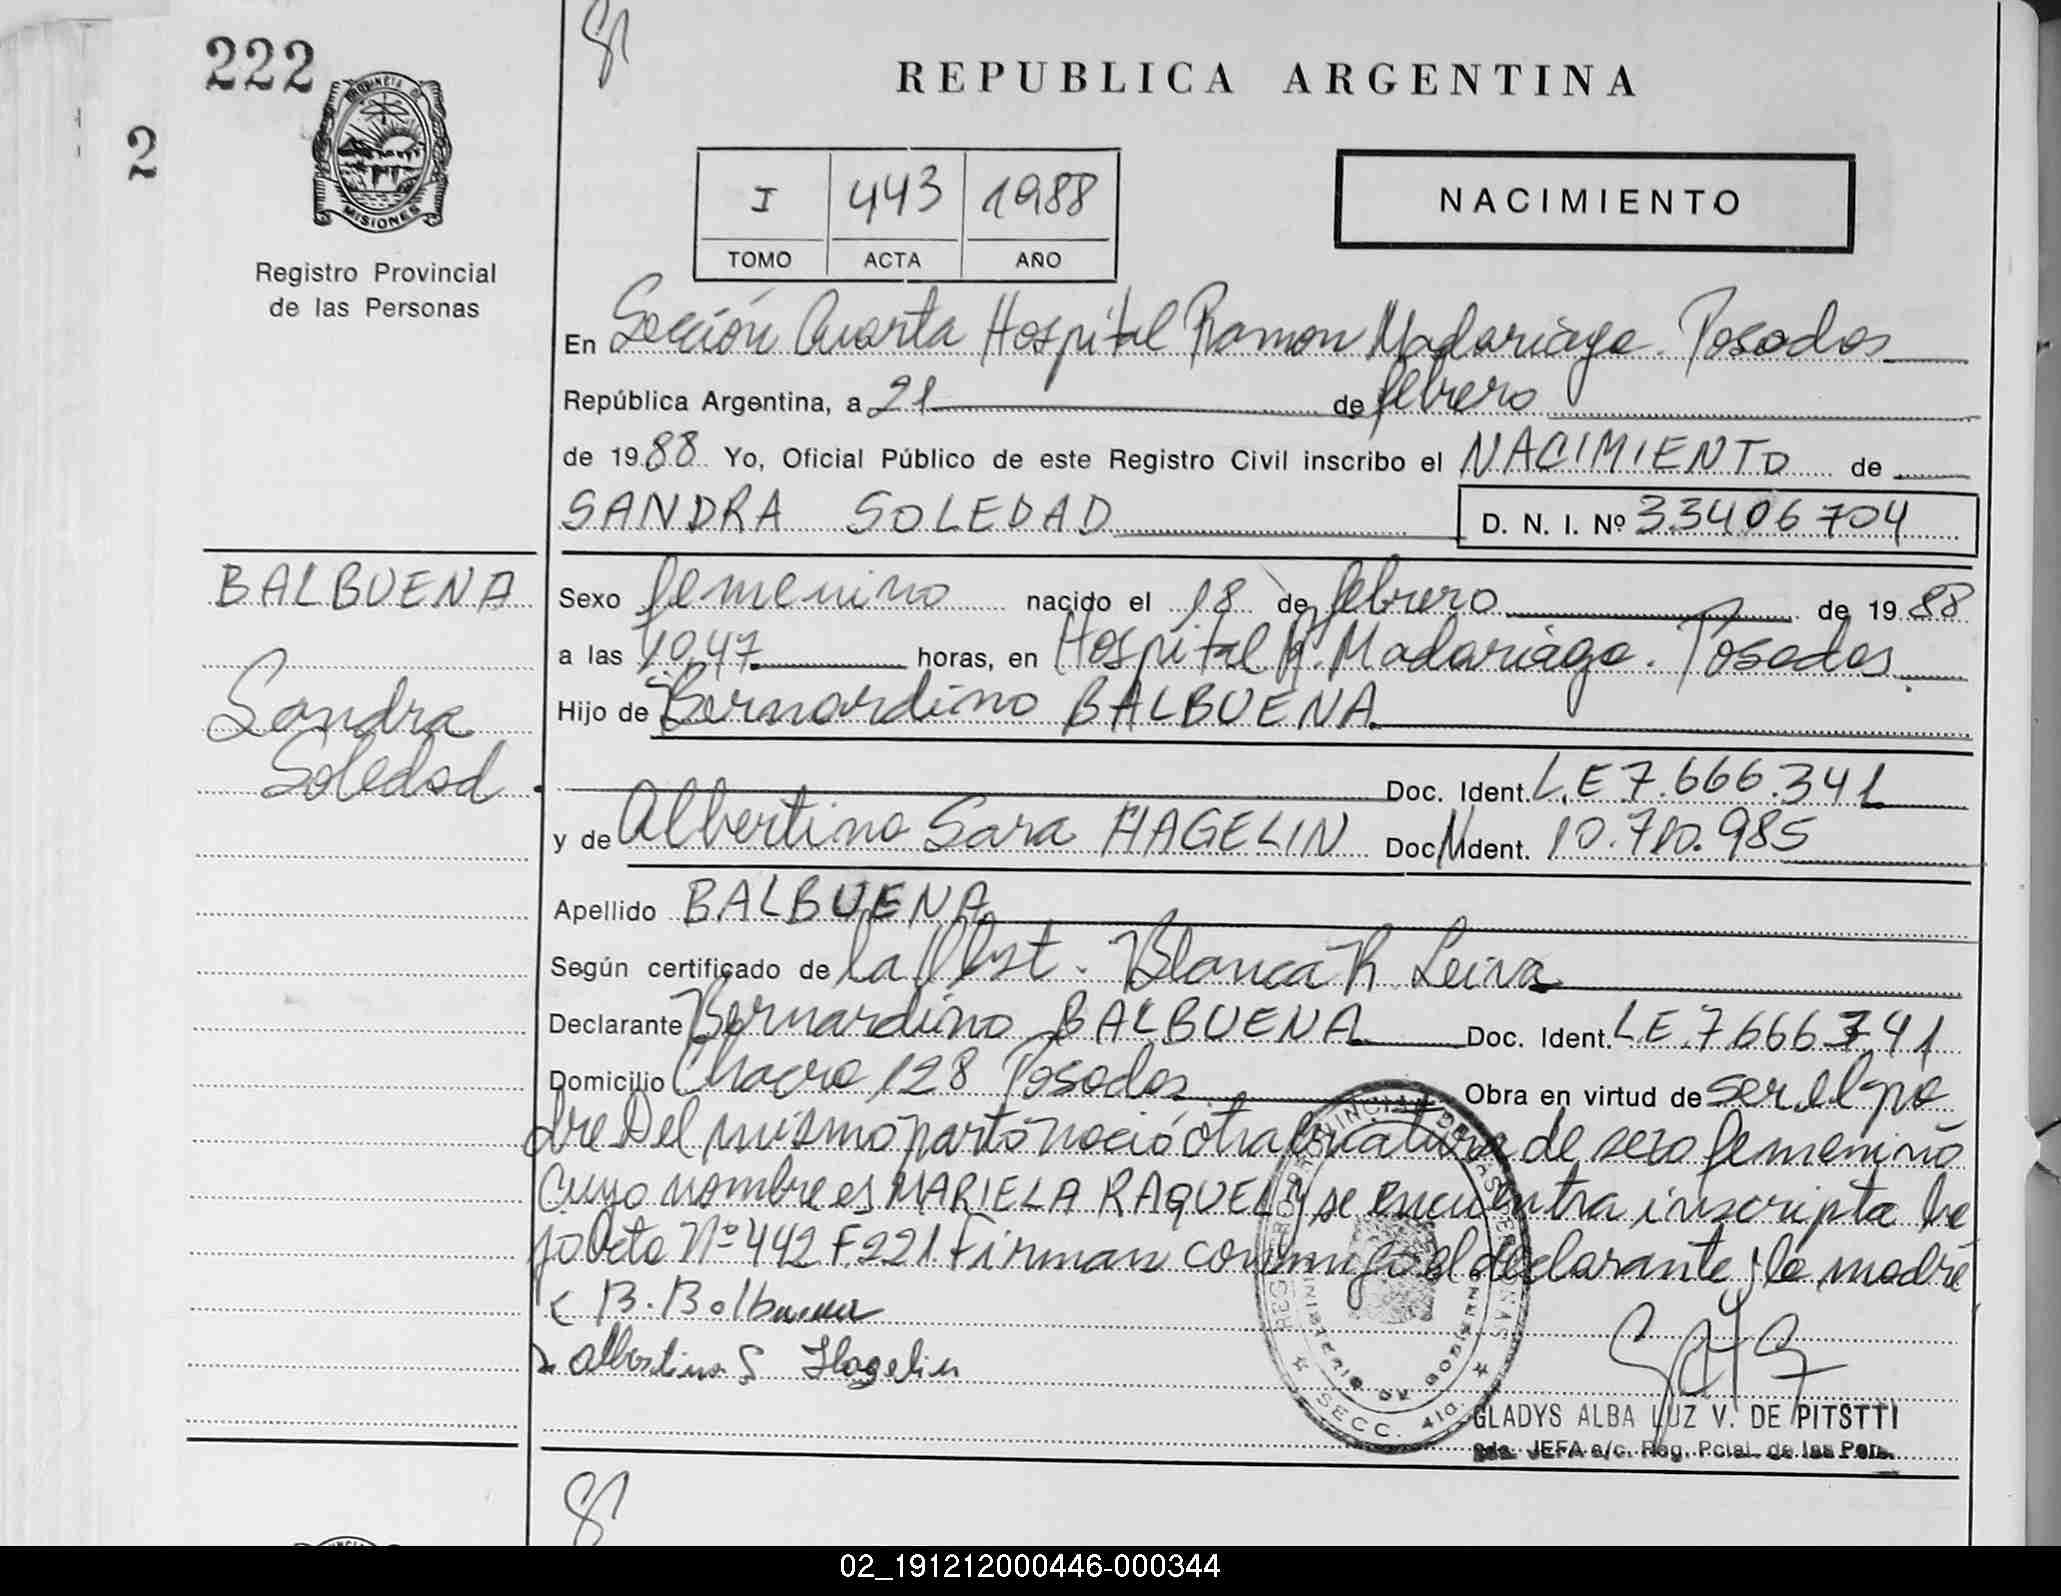 222
2
PROVINCIA DE
MISIONES
Registro Provincial
de las Personas
REPUBLICA ARGENTINA
I 443 1988
TOMO ACTA AÑO
NACIMIENTO
En Sección Cuarta Hospital Ramon Madariaga. Posadas
República Argentina, a 21 de febrero
de 1988 Yo, Oficial Público de este Registro Civil inscribo el NACIMIENTO de
SANDRA SOLEDAD D. N. I. Nº 33406704
BALBUENA
Sandra
Soledad
Sexo femenino nacido el 18 de febrero de 1988
a las 10,47 horas, en Hospital R. Madariaga. Posadas
Hijo de Bernardino BALBUENA
Doc. Ident. L.E 7.666.341
y de Albertina Sara HAGELIN Doc. Ident. 10.710.985
Apellido BALBUENA
Según certificado de la Obst. Blanca R. Leiva
Declarante Bernardino BALBUENA Doc. Ident. L.E. 7666341
Domicilio Chacra 128 Posadas Obra en virtud de ser el pa
dre Del mismo parto nació otra criatura de sexo femenino
cuyo nombre es MARIELA RAQUEL y se encuentra inscripta ba
jo Acta Nº 442 F.221. Firman conmigo el declarante y la madre
B. Balbuena
Albertina S Hagelin
REGISTRO PROVINCIAL DE LAS PERSONAS
MINISTERIO DE GOBIERNO
SECC. 4ta.
GLADYS ALBA LUZ V. DE PITSTTI
2da. JEFA a/c. Reg. Pcial. de las Per.
02_191212000446-000344